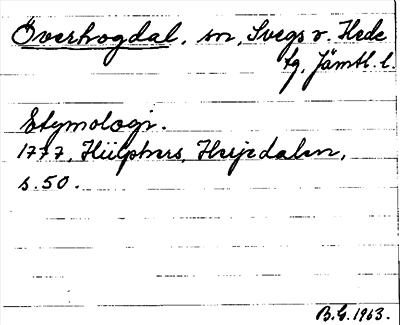 Överhogdal, sn, Svegs o. Hede
tg, Jämtl. l.
Etymologi.
1777, Hülphers, Herjedalen,
s. 50.
B.G. 1963.